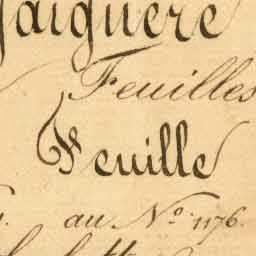 Jaiguere
Feuilles
Feuille
au N.º 1176.